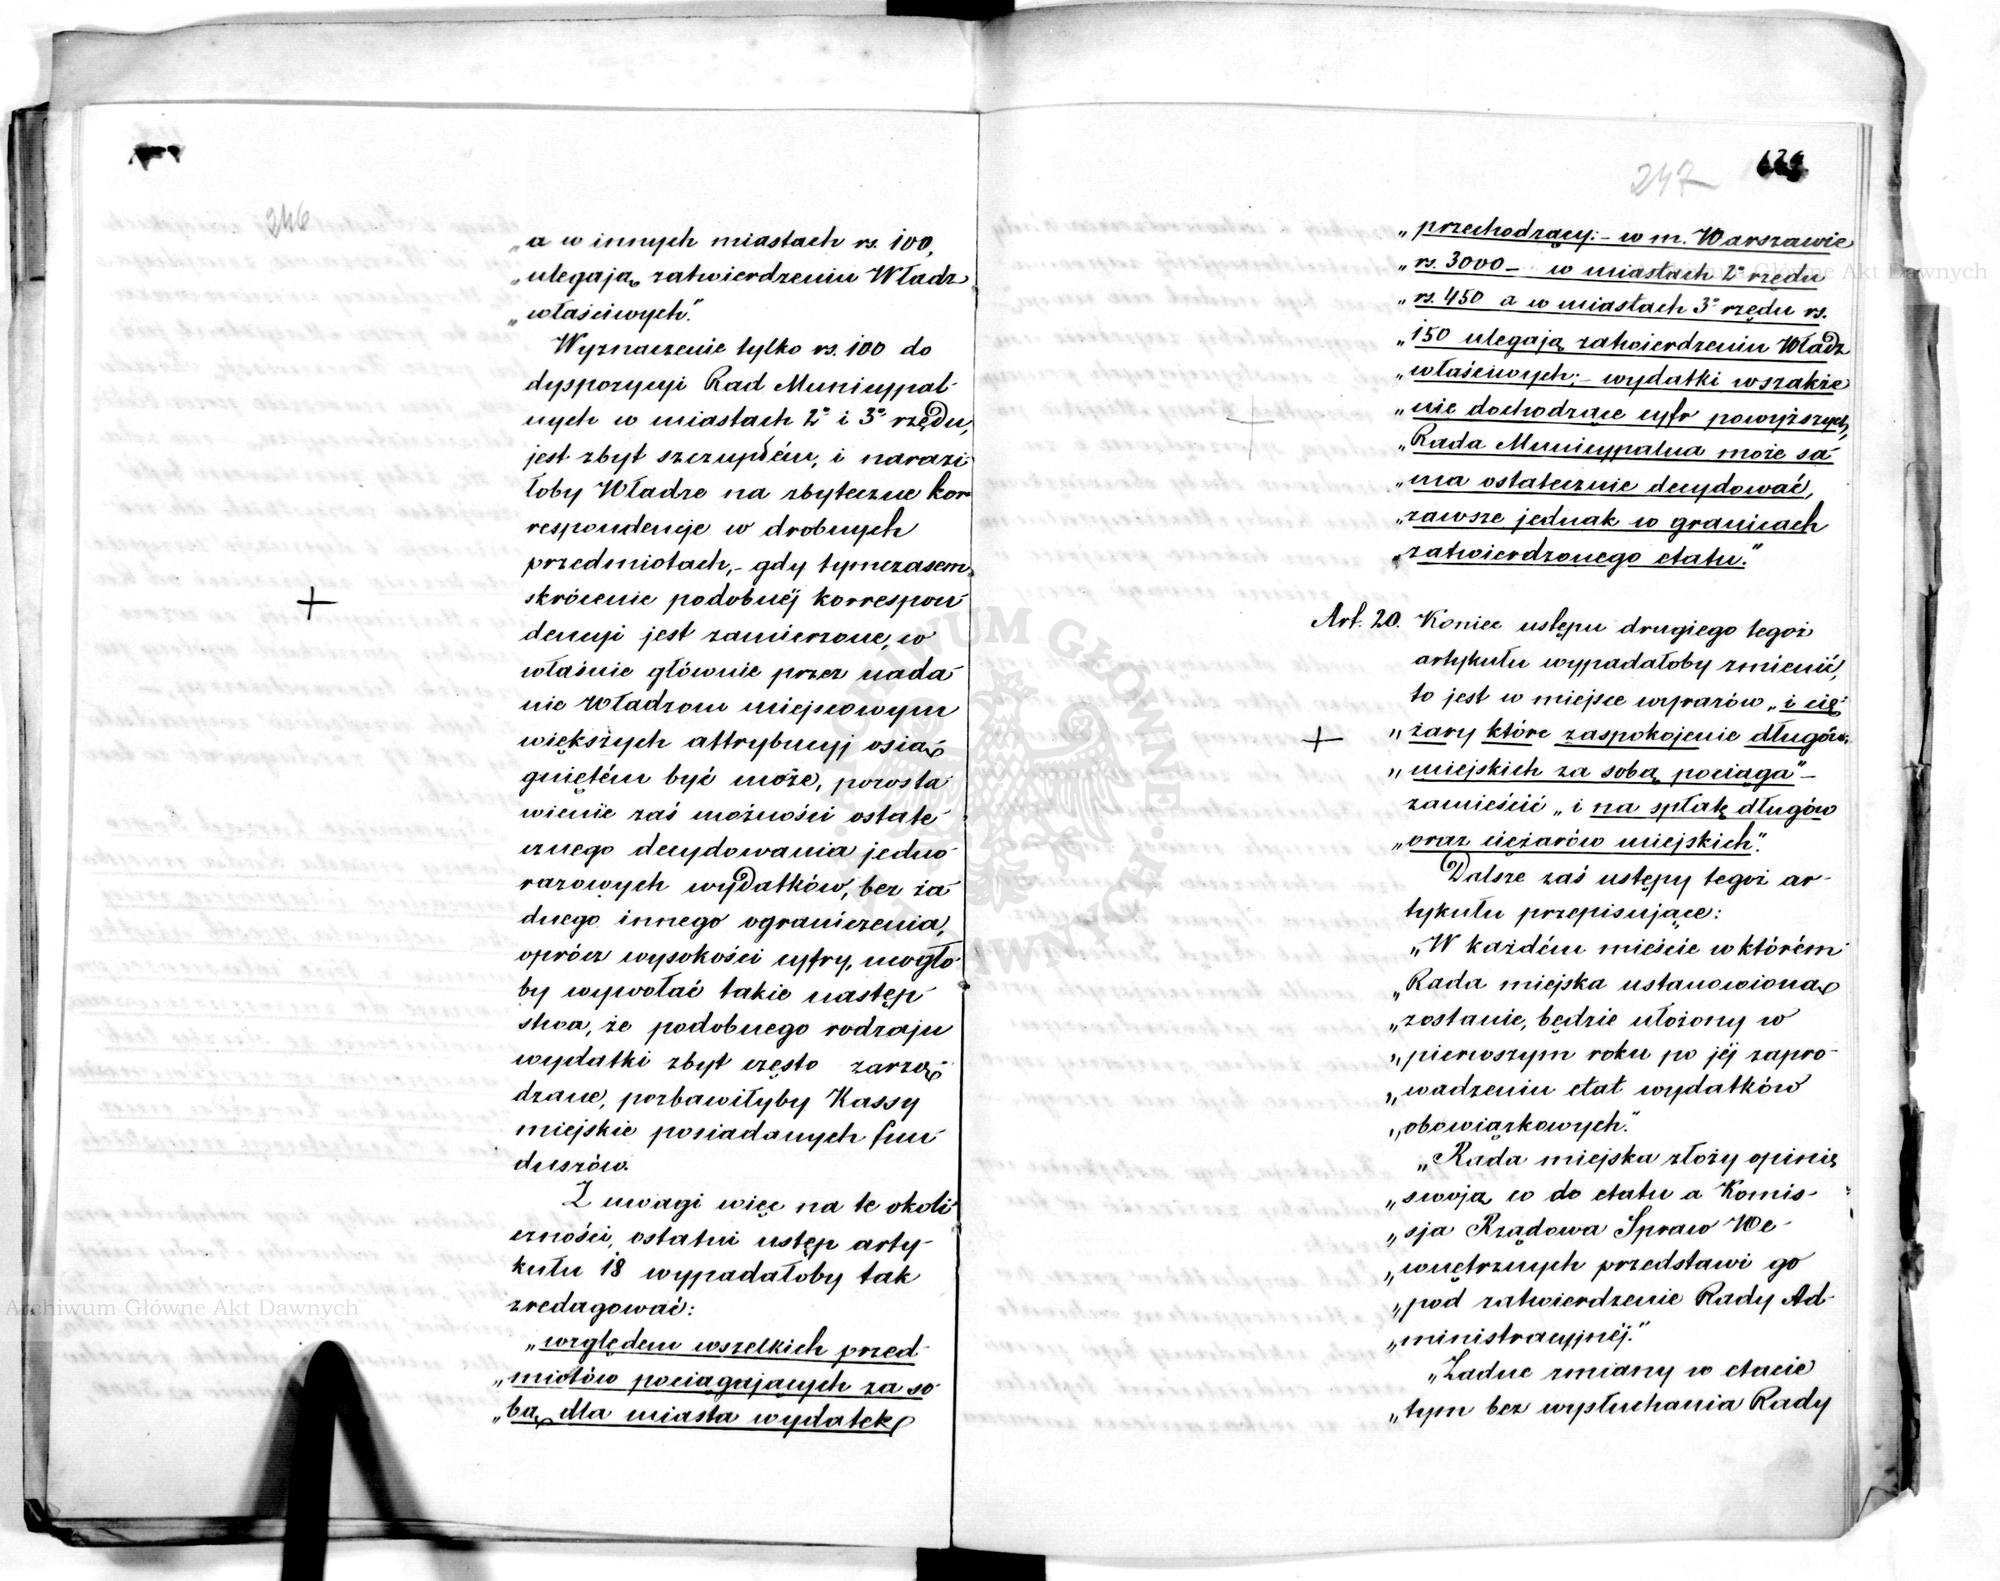 246
„a w innych miastach rs. 100,
„ulegają zatwierdzeniu Władz
„właściwych."
Wyznaczenie tylko rs. 100 do
dyspozycyi Rad Municypal-
nych w miastach 2° i 3° rzędu,
jest zbyt szczupłém, i narazi-
łoby Władze na zbyteczne kor
respondencje w drobnych
przedmiotach, - gdy tymczasem
skrócenie podobnéj korrespon-
dencyi jest zamierzone, co
właśnie głównie przez nada-
nie Władzom miejscowym
większych attrybucyj osią-
gniętém być może, pozosta-
wienie zaś możności ostate-
cznego decydowania jedno-
razowych wydatków, bez ża-
dnego innego ograniczenia,
oprócz wysokości cyfry, mogło-
by wywołać takie następ-
stwa, że podobnego rodzaju
wydatki zbyt często zarzą-
dzane, pozbawiłyby Kassy
miejskie posiadanych fun-
duszów.
Z uwagi więc na te okoli-
czności, ostatni ustęp arty-
kułu 18 wypadałoby tak
zredagować:
„względem wszelkich przed-
„miotów pociągających za so-
„bą dla miasta wydatek
247
„przechodzący: - w m. Warszawie
„rs. 3000 - w miastach 2° rzędu
„rs. 450 a w miastach 3° rzędu rs.
„150 ulegają zatwierdzeniu Władz
„właściwych; - wydatki wszakże
„nie dochodzące cyfr powyższych,
„Rada Municypalna może sa-
„ma ostatecznie decydować,
„zawsze jednak w granicach
„zatwierdzonego etatu."
Art. 20. Koniec ustępu drugiego tegoż
artykułu wypadałoby zmienić,
to jest w miejsce wyrazów „i cię-
„żary które zaspokojenie długów
„miejskich za sobą pociąga" -
zamieścić „i na spłatę długów
„oraz ciężarów miejskich".
Dalsze zaś ustępy tegoż ar-
tykułu przepisujące:
„W każdém mieście w którém
„Rada miejska ustanowioną
„zostanie, będzie ułożony w
„pierwszym roku po jéj zapro-
„wadzeniu etat wydatków
„obowiązkowych."
„Rada miejska złoży opinię
„swoją co do etatu a Komis-
„sja Rządowa Spraw We-
„wnętrznych przedstawi go
„pod zatwierdzenie Rady Ad-
„ministracyjnéj."
„Żadne zmiany w etacie
„tym bez wysłuchania Rady
Archiwum Główne Akt Dawnych
Archiwum Główne Akt Dawnych